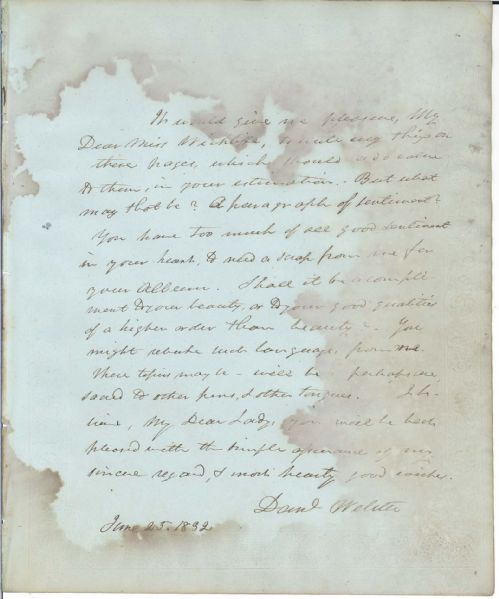 It would give me pleasure, My
Dear Miss Wickliffe, to write any thing on
these pages, which should add value
to them, in your estimation. But what
may that be? A paragraph of sentiment?
You have too much of all good sentiment
in your heart, to need a scrap from me for
your Album. Shall it be a compli
ment to your beauty, or to your good qualities
of a higher order than beauty? You
might rebuke such language, from me.
These topics may be - will be perhaps are,
saved to other pens, & other tongues. I be-
lieve, My Dear Lady, you will be best
pleased with the simple assurance of my
sincere regard, & most hearty good wishes.
Danl Webster
June 25. 1832